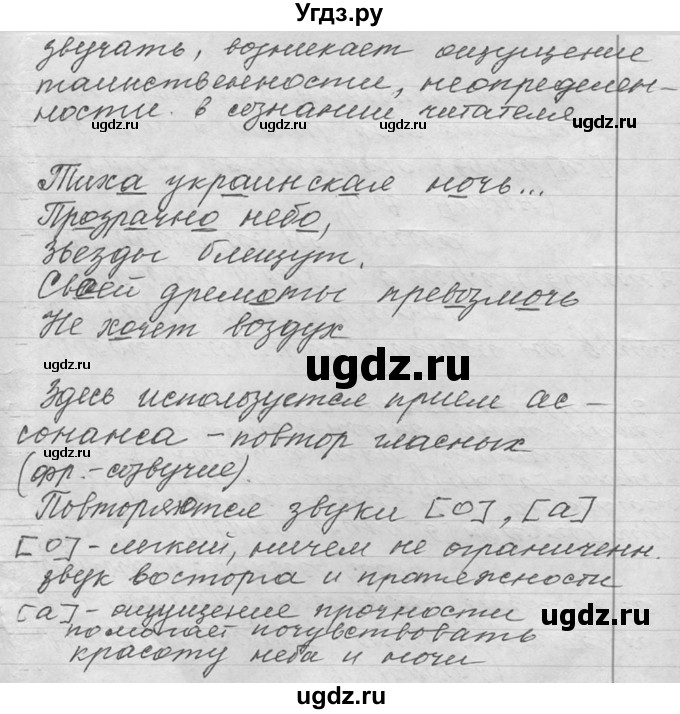 Угдз.ру
звучать, возникает ощущение
таинственности, неопределен-
ности. в сознании читателя
ugdz.ru ugdz.ru ugdz.ru ugdz.ru
Тиха украинская ночь...
Прозрачно небо,
ugdz.ru
Звезды блещут.
ugdz.ru
Своей дремоты превозмочь
ugdz.ru ugdz.ru ugdz.ru
Не хочет воздух
ugdz.ru
ugdz.ru
Здесь используется прием ас-
сонанса - повтор гласных
ugdz.ru
(фр.-созвучие).
Повторяются звуки [о], [а]
[о] - легкий, ничем не ограниченн.
звук восторга и протяжности
[а] - ощущение прочности
ugdz.ru
помогает почувствовать
красоту неба и ночи
ugdz.ru